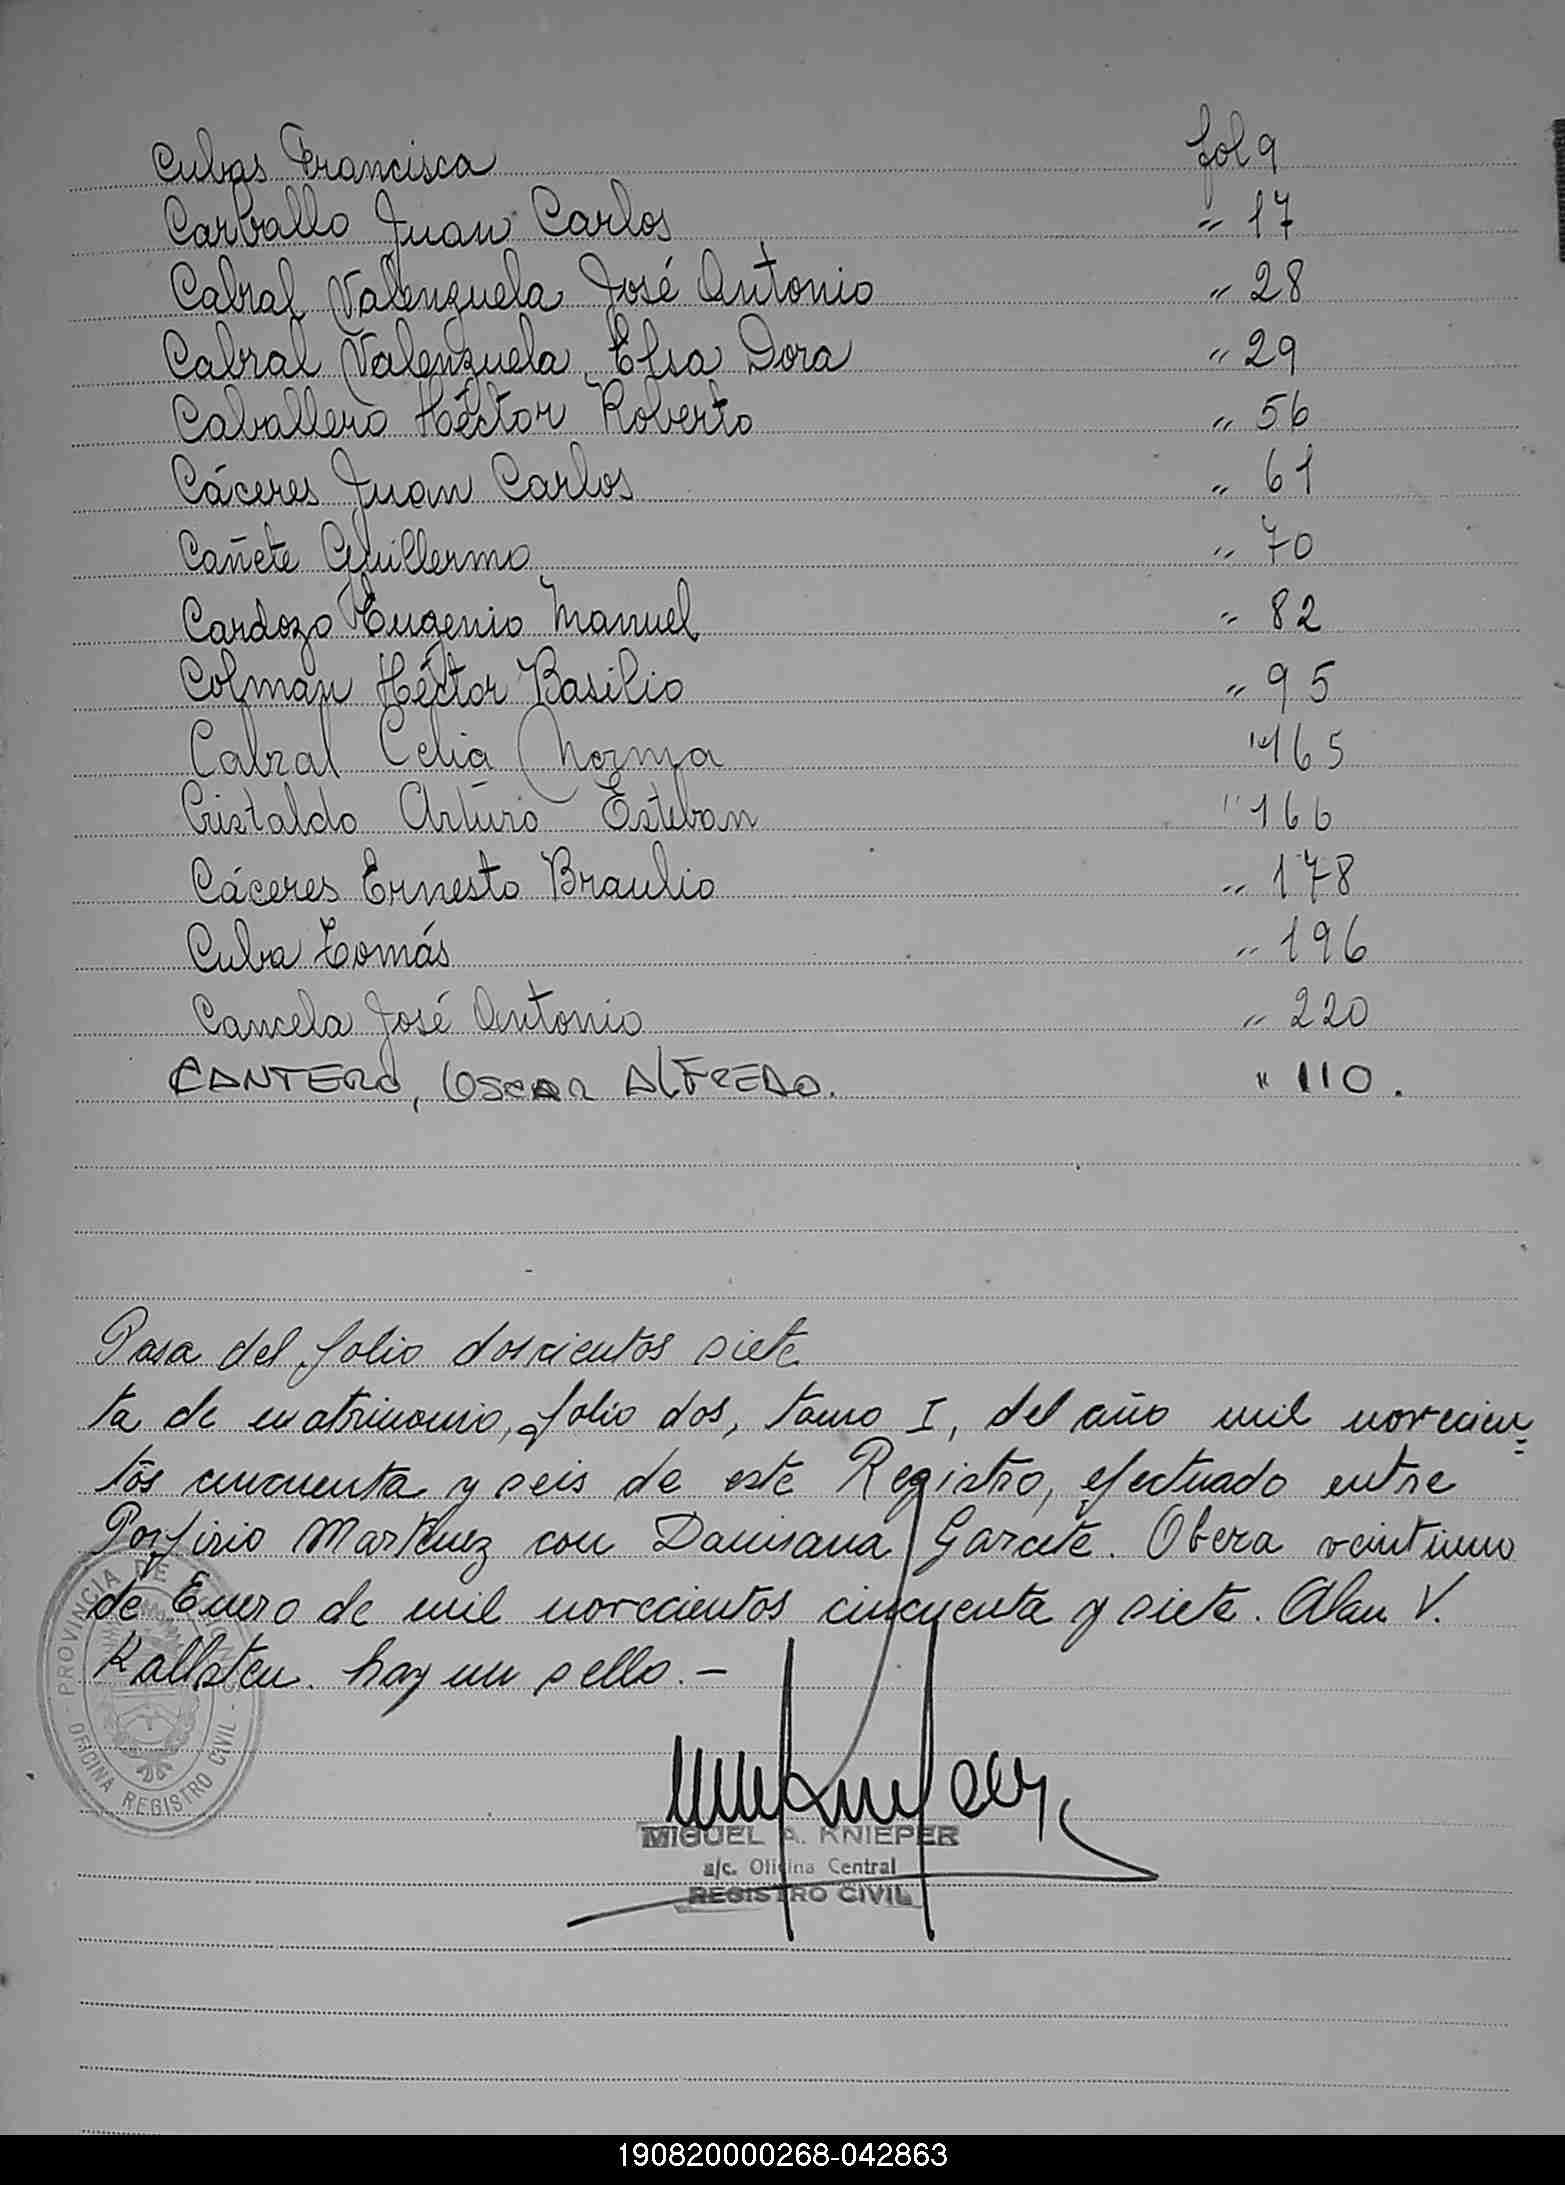 Cubas Francisca fol 9
Carballo Juan Carlos " 17
Cabral Valenzuela José Antonio " 28
Cabral Valenzuela Elsa Dora " 29
Caballero Héctor Roberto " 56
Cáceres Juan Carlos " 61
Cañete Guillermo " 70
Cardozo Eugenio Manuel " 82
Colman Héctor Basilio " 95
Cabral Celia Norma " 165
Cristaldo Arturo Esteban " 166
Cáceres Ernesto Braulio " 178
Cuba Tomás " 196
Cancela José Antonio " 220
CANTERO, OSCAR ALFREDO. " 110.
Pasa del folio doscientos siete
ta de matrimonio, folio dos, tomo I, del año mil novecien=
tos cincuenta y seis de este Registro, efectuado entre
Porfirio Martinez con Damiana Garcete. Obera veintiuno
de Enero de mil novecientos cincuenta y siete. Alan V.
Kallsten. hay un sello.-
PROVINCIA DE MISIONES - OFICINA REGISTRO CIVIL -
MIGUEL A. KNIEPER
a/c. Oficina Central
REGISTRO CIVIL
190820000268-042863